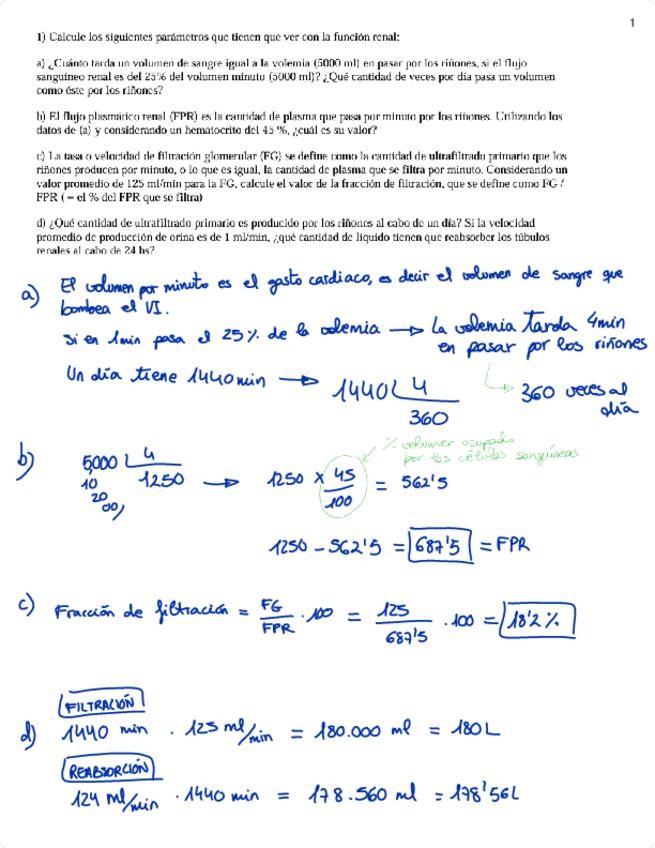 1
1) Calcule los siguientes parámetros que tienen que ver con la función renal:
a) ¿Cuánto tarda un volumen de sangre igual a la volemia (5000 ml) en pasar por los riñones, si el flujo
sanguíneo renal es del 25% del volumen minuto (5000 ml)? ¿Qué cantidad de veces por día pasa un volumen
como éste por los riñones?
b) El flujo plasmático renal (FPR) es la cantidad de plasma que pasa por minuto por los riñones. Utilizando los
datos de (a) y considerando un hematocrito del 45 %, ¿cuál es su valor?
c) La tasa o velocidad de filtración glomerular (FG) se define como la cantidad de ultrafiltrado primario que los
riñones producen por minuto, o lo que es igual, la cantidad de plasma que se filtra por minuto. Considerando un
valor promedio de 125 ml/min para la FG, calcule el valor de la fracción de filtración, que se define como FG /
FPR ( = el % del FPR que se filtra)
d) ¿Qué cantidad de ultrafiltrado primario es producido por los riñones al cabo de un día? Si la velocidad
promedio de producción de orina es de 1 ml/min, ¿qué cantidad de líquido tienen que reabsorber los túbulos
renales al cabo de 24 hs?
a) El volumen por minuto es el gasto cardiaco, es decir el volumen de sangre que
bombea el VI.
Si en 1min pasa el 25% de la volemia → La volemia Tarda 4min
en pasar por los riñones
Un día tiene 1440min → 1440 4
360
360 veces al
día
b) 5,000 4
10 1250
20
00,
→ 1250 × 45/100 = 562'5
% volumen ocupado
por las células sanguíneas
1250 - 562'5 = 687'5 = FPR
c) Fracción de filtración = FG/FPR · 100 = 125/687'5 · 100 = 18'2 %
FILTRACIÓN
d) 1440 min · 125 ml/min = 180.000 ml = 180L
REABSORCIÓN
124 ml/min · 1440 min = 178.560 ml = 178'56L